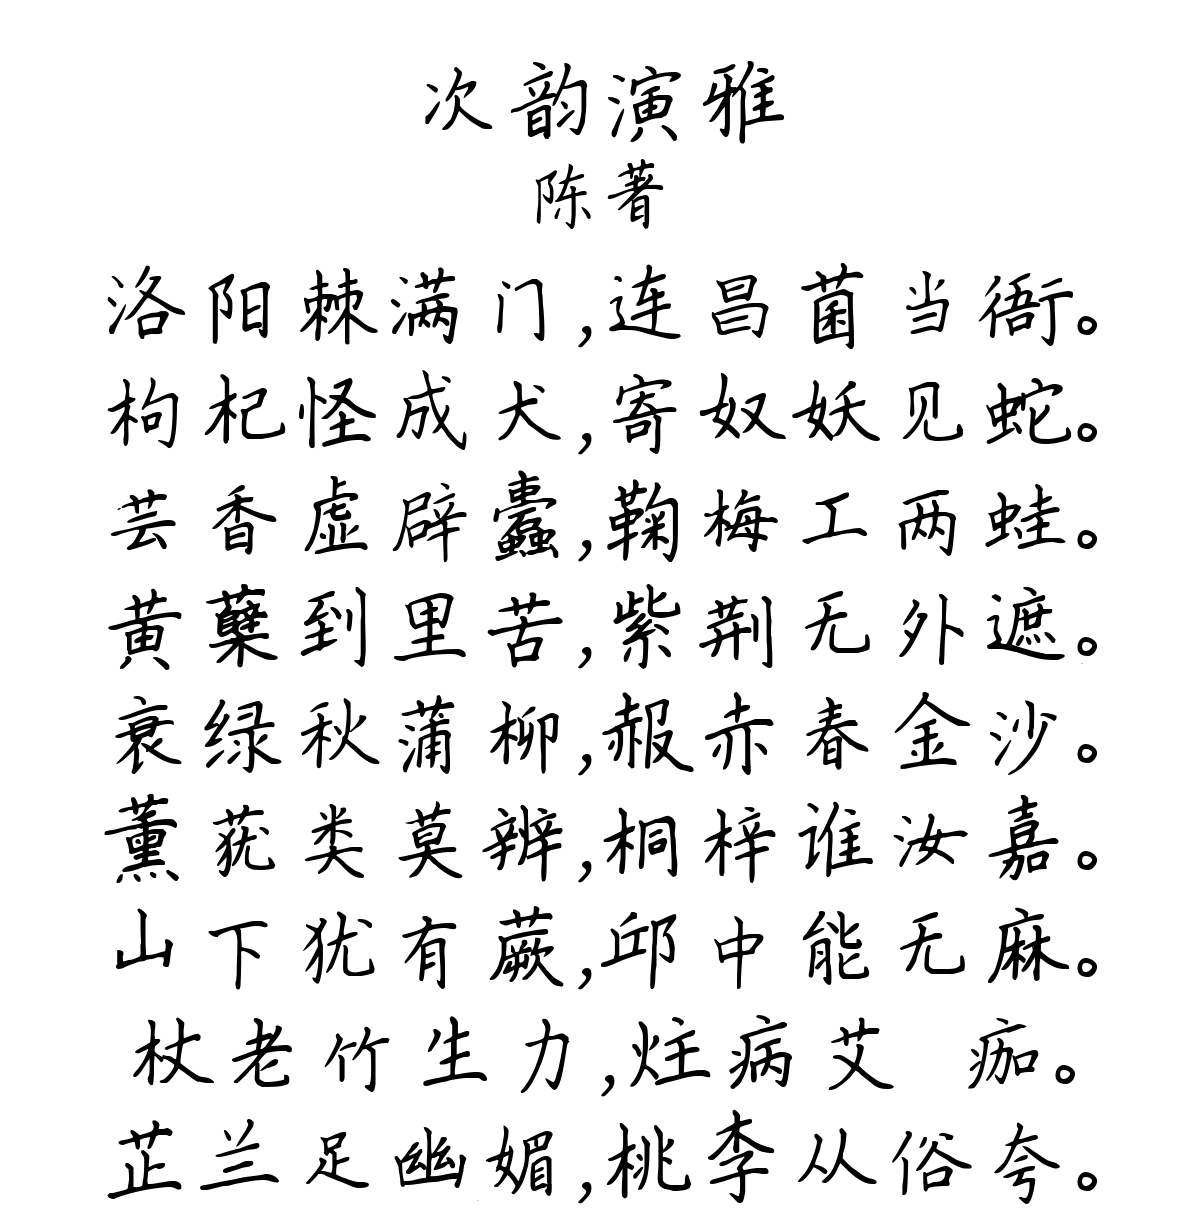 次韵演雅
陈著
洛阳棘满门,连昌菌当衙。
枸杞怪成犬,寄奴妖见蛇。
芸香虚辟蠹,鞠梅工两蛙。
黄蘗到里苦,紫荆无外遮。
衰绿秋蒲柳,赧赤春金沙。
薰莸类莫辨,桐梓谁汝嘉。
山下犹有蕨,邱中能无麻。
杖老竹生力,炷病艾 痂。
芷兰足幽媚,桃李从俗夸。